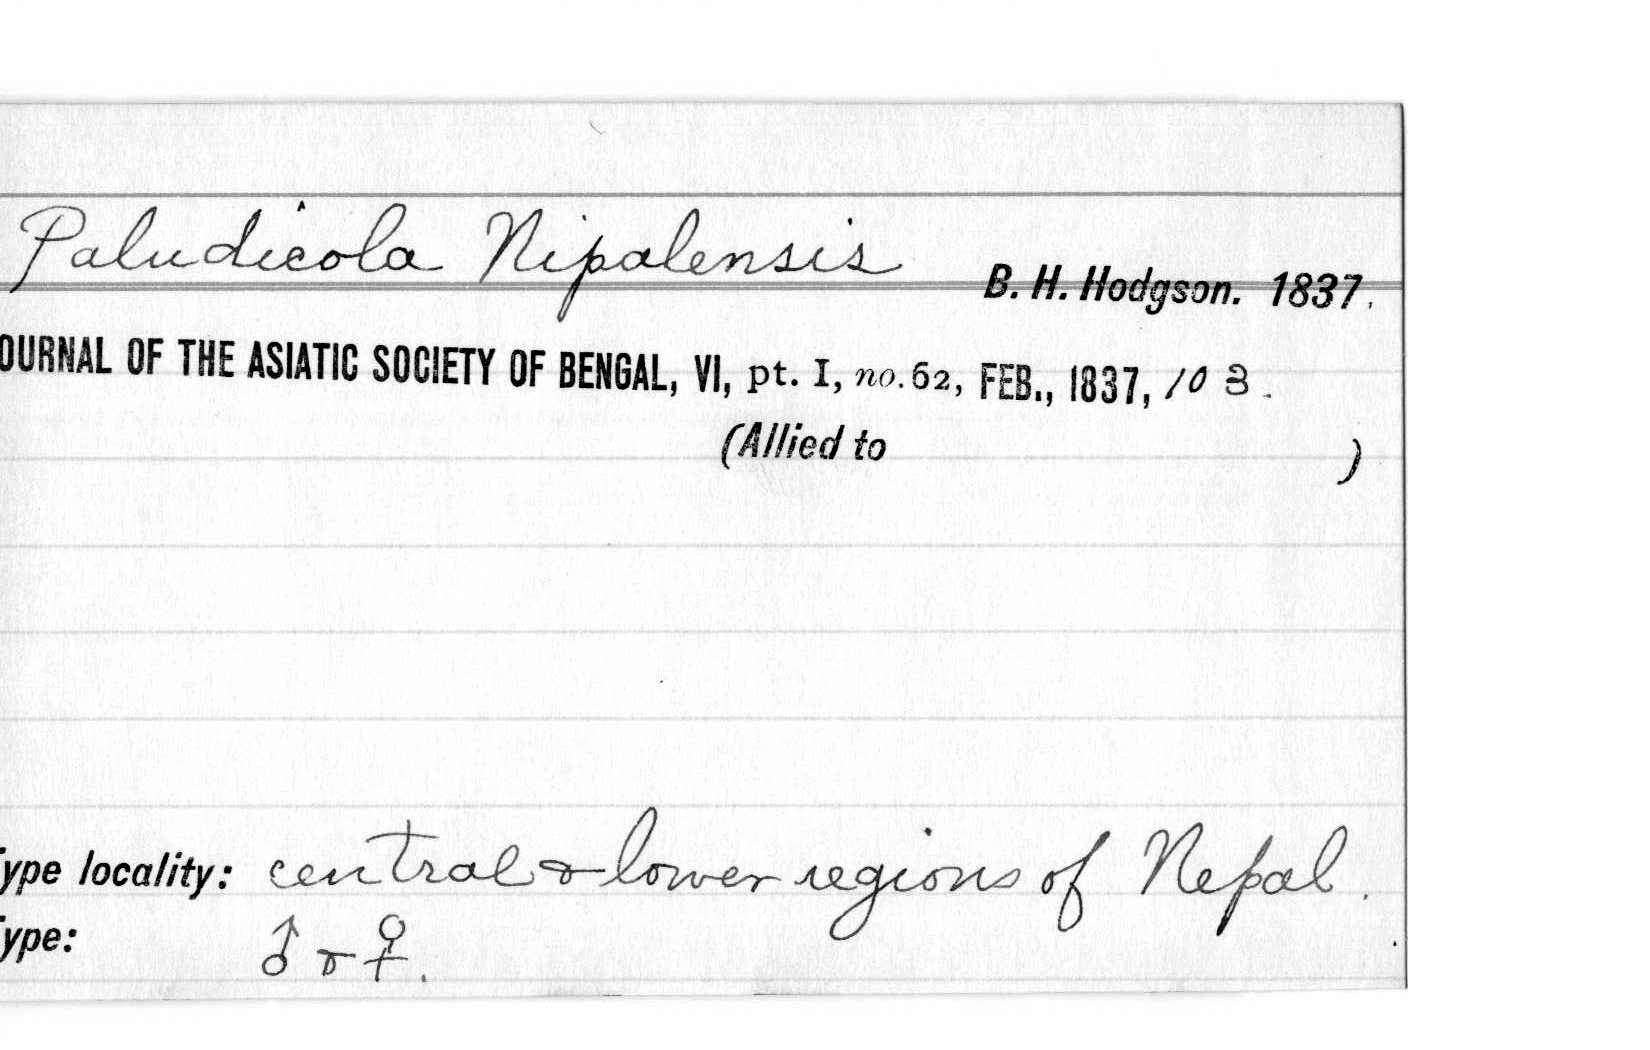 Paludicola Nipalensis B. H. Hodgson. 1837.
OURNAL OF THE ASIATIC SOCIETY OF BENGAL, VI, pt. I, no. 62, FEB., 1837, 108.
(Allied to )
Type locality: central & lower regions of Nepal.
Type: ♂ & ♀.